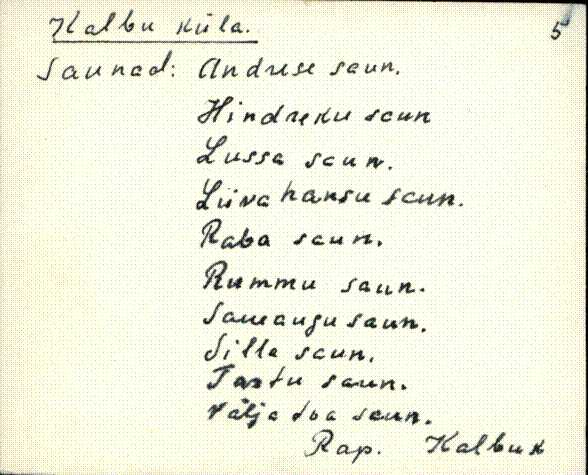 Kalbu küla. 5
Saunad: Andrese saun.
Hindreku saun
Lussa saun.
Liivahansu saun.
Raba saun.
Rummu saun.
Saueaugu saun.
Silla saun.
Tartu saun.
Väljatoa saun.
Rap. Kalbuk